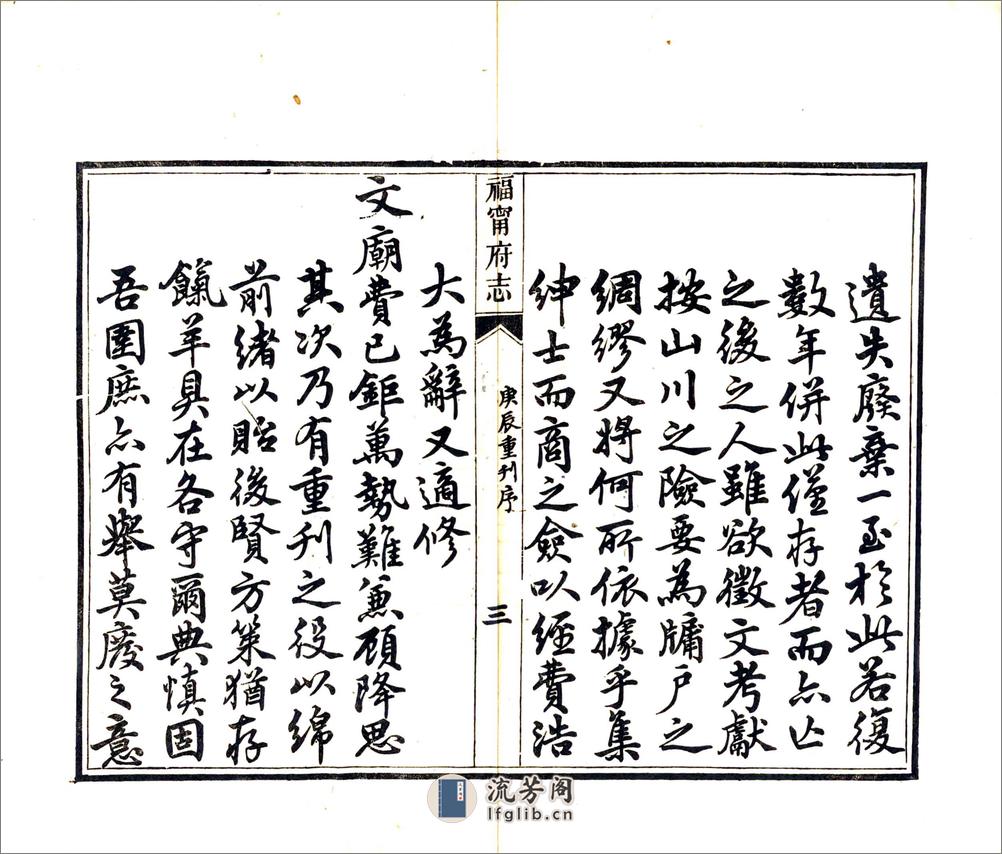 遺失廢棄一至於此若復
數年併此僅存者而亦亡
之後之人雖欲徵文考獻
按山川之險要為牖戶之
綢繆又將何所依據乎集
紳士而商之僉以經費浩
福甯府志
庚辰重刊序
三
大為辭又適修
文廟費已鉅萬勢難兼顧降思
其次乃有重刊之役以綿
前緒以貽後賢方策猶存
餼羊具在各守爾典慎固
吾圉庶亦有舉莫廢之意
流芳阁
lfglib.cn